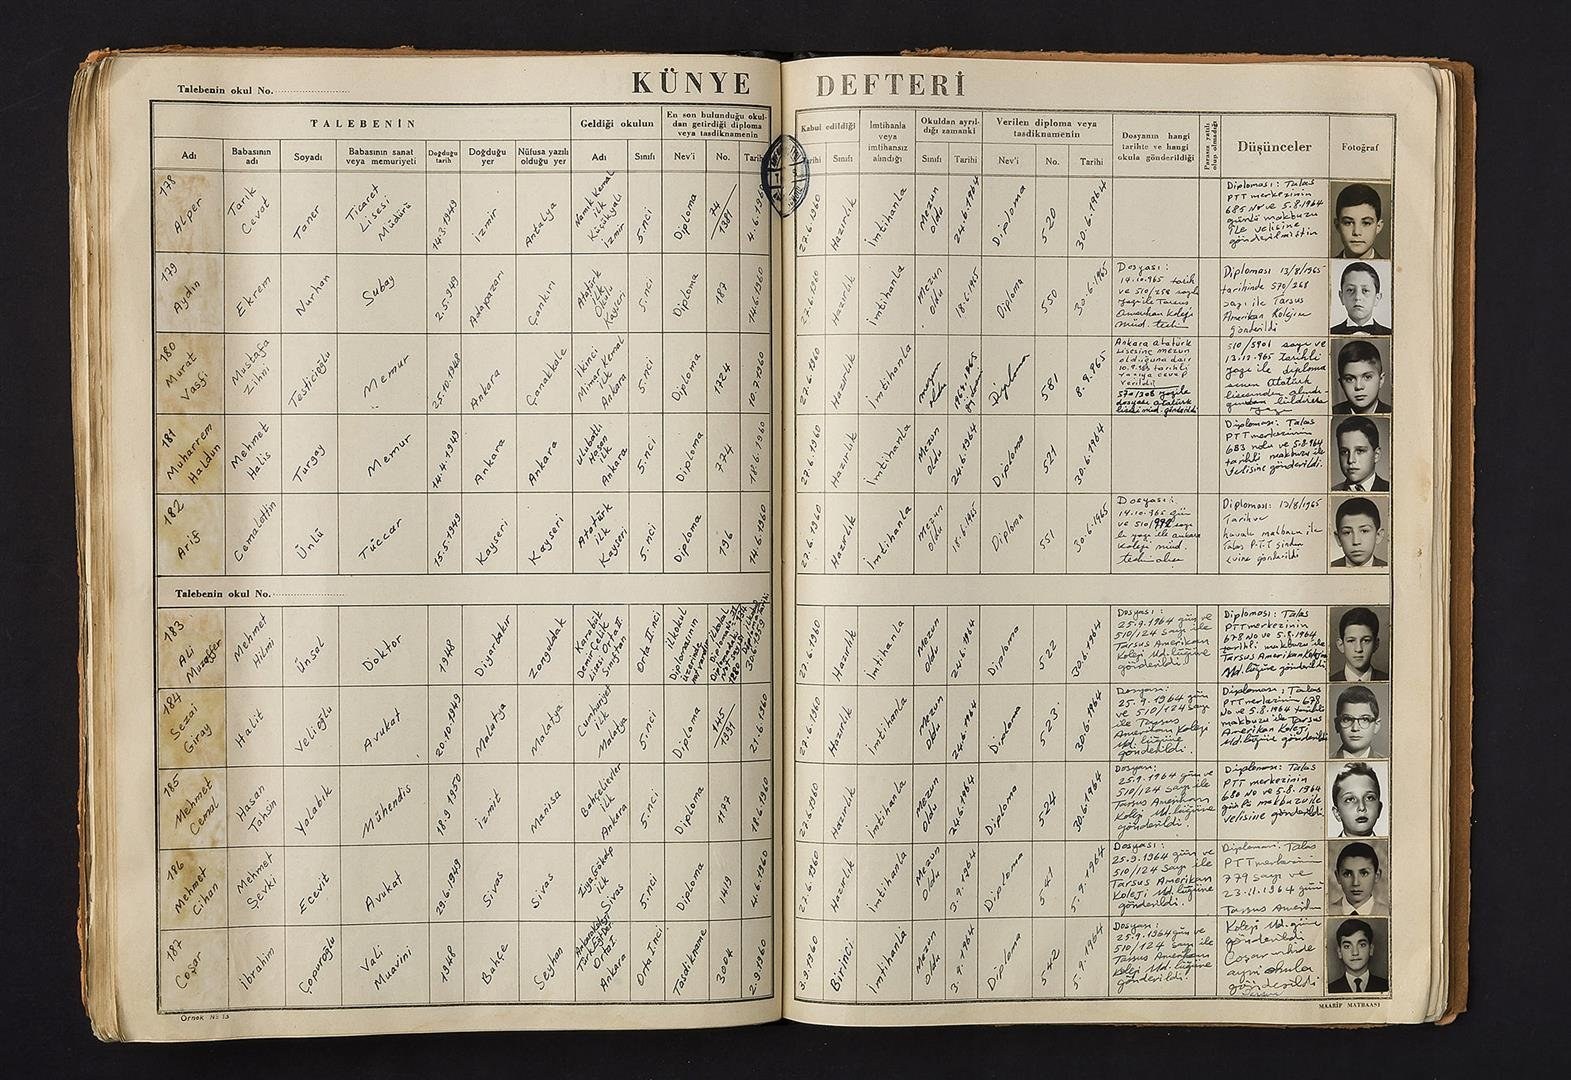 KÜNYE DEFTERİ
Talebenin okul No.
TALEBENİN
Geldiği okulun
En son bulunduğu okul-
dan getirdiği diploma
veya tasdiknamenin
Kabul edildiği
İmtihanla
veya
imtihansız
alındığı
Okuldan ayrıl-
dığı zamanki
Verilen diploma veya
tasdiknamenin
Dosyanın hangi
tarihte ve hangi
okula gönderildiği
Parasız yatılı
olup olmadığı
Düşünceler
Fotoğraf
Adı
Babasının
adı
Soyadı
Babasının sanat
veya memuriyeti
Doğduğu
tarih
Doğduğu
yer
Nüfusa yazılı
olduğu yer
Adı
Sınıfı
Nev'i
No.
Tarihi
Tarihi
Sınıfı
Sınıfı
Tarihi
Nev'i
No.
Tarihi
178
Alper
Tarık
Cevat
Taner
Ticaret
Lisesi
Müdürü
14.3.1949
İzmir
Antalya
Namık Kemal
ilk
Küçükyalı
İzmir
5.nci
Diploma
74/
1381
4.6.1960
27.6.1960
Hazırlık
İmtihanla
Mezun
oldu
24.6.1964
Diploma
520
30.6.1964
Diploması: Talas
PTT merkezinin
685 No ve 5.8.1964
günlü makbuzu
ile velisine
gönderilmiştir
179
Aydın
Ekrem
Nurhan
Subay
2.5.949
Adapazarı
Çankırı
Atatürk
ilk
Okulu
Kayseri
5.inci
Diploma
187
14.6.1960
27.6.1960
Hazırlık
İmtihanla
Mezun
oldu
18.6.1965
Diploma
550
30.6.1965
Dosyası:
14.10.965 tarih
ve 510/258 sayılı
yazı ile Tarsus
Amerikan Koleji
müd.
Diploması 13/8/1965
tarihinde 570/268
sayı ile Tarsus
Amerikan Kolejine
gönderildi
180
Murat
Vasfi
Mustafa
Zihni
Testicioğlu
Memur
25.10.1948
Ankara
Çanakkale
İkinci
Mimar Kemal
ilk
Ankara
5.nci
Diploma
1724
10.7.1960
27.6.1960
Hazırlık
İmtihanla
Diploma
581
8.9.965
Ankara Atatürk
Lisesine mezun
olduğuna dair
10.9.965 tarihli
yazıya cevap
verildi
570/308 yazı ile
dosyası Atatürk
lisesi müd. gönderildi
510/5901 sayı ve
13.12.965 tarihli
yazı ile diploma
Atatürk
181
Muharrem
Haldun
Mehmet
Halis
Turgay
Memur
14.4.1949
Ankara
Ankara
Ulubatlı
Hasan
ilk
Ankara
5.nci
Diploma
774
18.6.1960
27.6.1960
Hazırlık
İmtihanla
Mezun
oldu
24.6.1964
Diploma
521
30.6.1964
Diploması: Talas
PTT merkezinin
683 nolu ve 5.8.964
tarihli makbuzu ile
Velisine gönderildi.
182
Arif
Cemalettin
Ünlü
Tüccar
15.5.1949
Kayseri
Kayseri
Atatürk
ilk
Kayseri
5.nci
Diploma
196
14.6.1960
27.6.1960
Hazırlık
İmtihanla
Mezun
oldu
18.6.1965
Diploma
551
30.6.1965
Dosyası:
14.10.965 gün
yazı ile Ankara
Koleji müd.
Diploması:
Talas P.T.T
evine gönderildi
Talebenin okul No.
183
Ali
Muzaffer
Mehmet
Hilmi
Ünsal
Doktor
1948
Diyarbakır
Zonguldak
Karabük
Demir Çelik
Lisesi Orta II
Sınıftan
Orta II.nci
İlkokul
Diplomasının
30.6.1959
27.6.1960
Hazırlık
İmtihanla
Mezun
oldu
24.6.1964
Diploma
522
30.6.1964
Dosyası:
25.9.1964 gün ve
510/124 sayı ile
Tarsus Amerikan
Koleji Md.lüğüne
gönderildi.
Diploması: Talas
PTT merkezinin
678 No ve 5.8.1964
tarihli makbuzu ile
Tarsus Amerikan Koleji
Md.lüğüne gönderildi
184
Sezai
Giray
Halit
Velioğlu
Avukat
20.10.1949
Malatya
Malatya
Cumhuriyet
ilk
Malatya
5.nci
Diploma
145
1391
21.6.1960
27.6.1960
Hazırlık
İmtihanla
Mezun
oldu
24.6.1964
Diploma
523
30.6.1964
Dosyası:
25.9.1964 gün
ve 510/124 sayı
ile Tarsus
Amerikan Koleji
Md.lüğüne
gönderildi.
Diploması: Talas
PTT merkezinin 678
No ve 5.8.1964 tarihli
makbuzu ile Tarsus
Amerikan Koleji
Md.lüğüne gönderildi
185
Mehmet
Cemal
Hasan
Tahsin
Yalabık
Mühendis
18.9.1950
İzmit
Manisa
Bahçelievler
ilk
Ankara
5.nci
Diploma
1177
18.6.1960
27.6.1960
Hazırlık
İmtihanla
Mezun
oldu
24.6.1964
Diploma
524
30.6.1964
Dosyası:
25.9.1964 gün ve
510/124 sayı ile
Tarsus Amerikan
Koleji Md.lüğüne
gönderildi.
Diploması: Talas
PTT merkezinin
680 No ve 5.8.1964
günlü makbuzu ile
velisine gönderildi.
186
Mehmet
Cihan
Mehmet
Şevki
Ecevit
Avukat
29.6.1949
Sivas
Sivas
Ziya Gökalp
ilk
Sivas
5.nci
Diploma
1419
4.6.1960
27.6.1960
Hazırlık
İmtihanla
Mezun
Oldu
3.9.1964
Diploma
541
5.9.1964
Dosyası:
25.9.1964 gün ve
510/124 sayı ile
Tarsus Amerikan
Koleji Md.lüğüne
gönderildi.
Diploması: Talas
PTT merkezinin
779 sayı ve
23.11.1964 günü
Tarsus Amerikan
Koleji Md.lüğüne
gönderildi
187
Coşar
İbrahim
Çopuroğlu
Vali
Muavini
1948
Bahçe
Seyhan
Orta I
Ankara
Orta I.nci
Tasdikname
3004
2.9.1960
3.9.1960
Birinci
İmtihanla
Mezun
oldu
3.9.1964
Diploma
542
5.9.1964
Dosyası:
25.9.1964 gün ve
510/124 sayı ile
Tarsus Amerikan
Koleji Md.lüğüne
gönderildi.
aynı okula
gönderildi
Örnek No 13
MAARİF MATBAASI